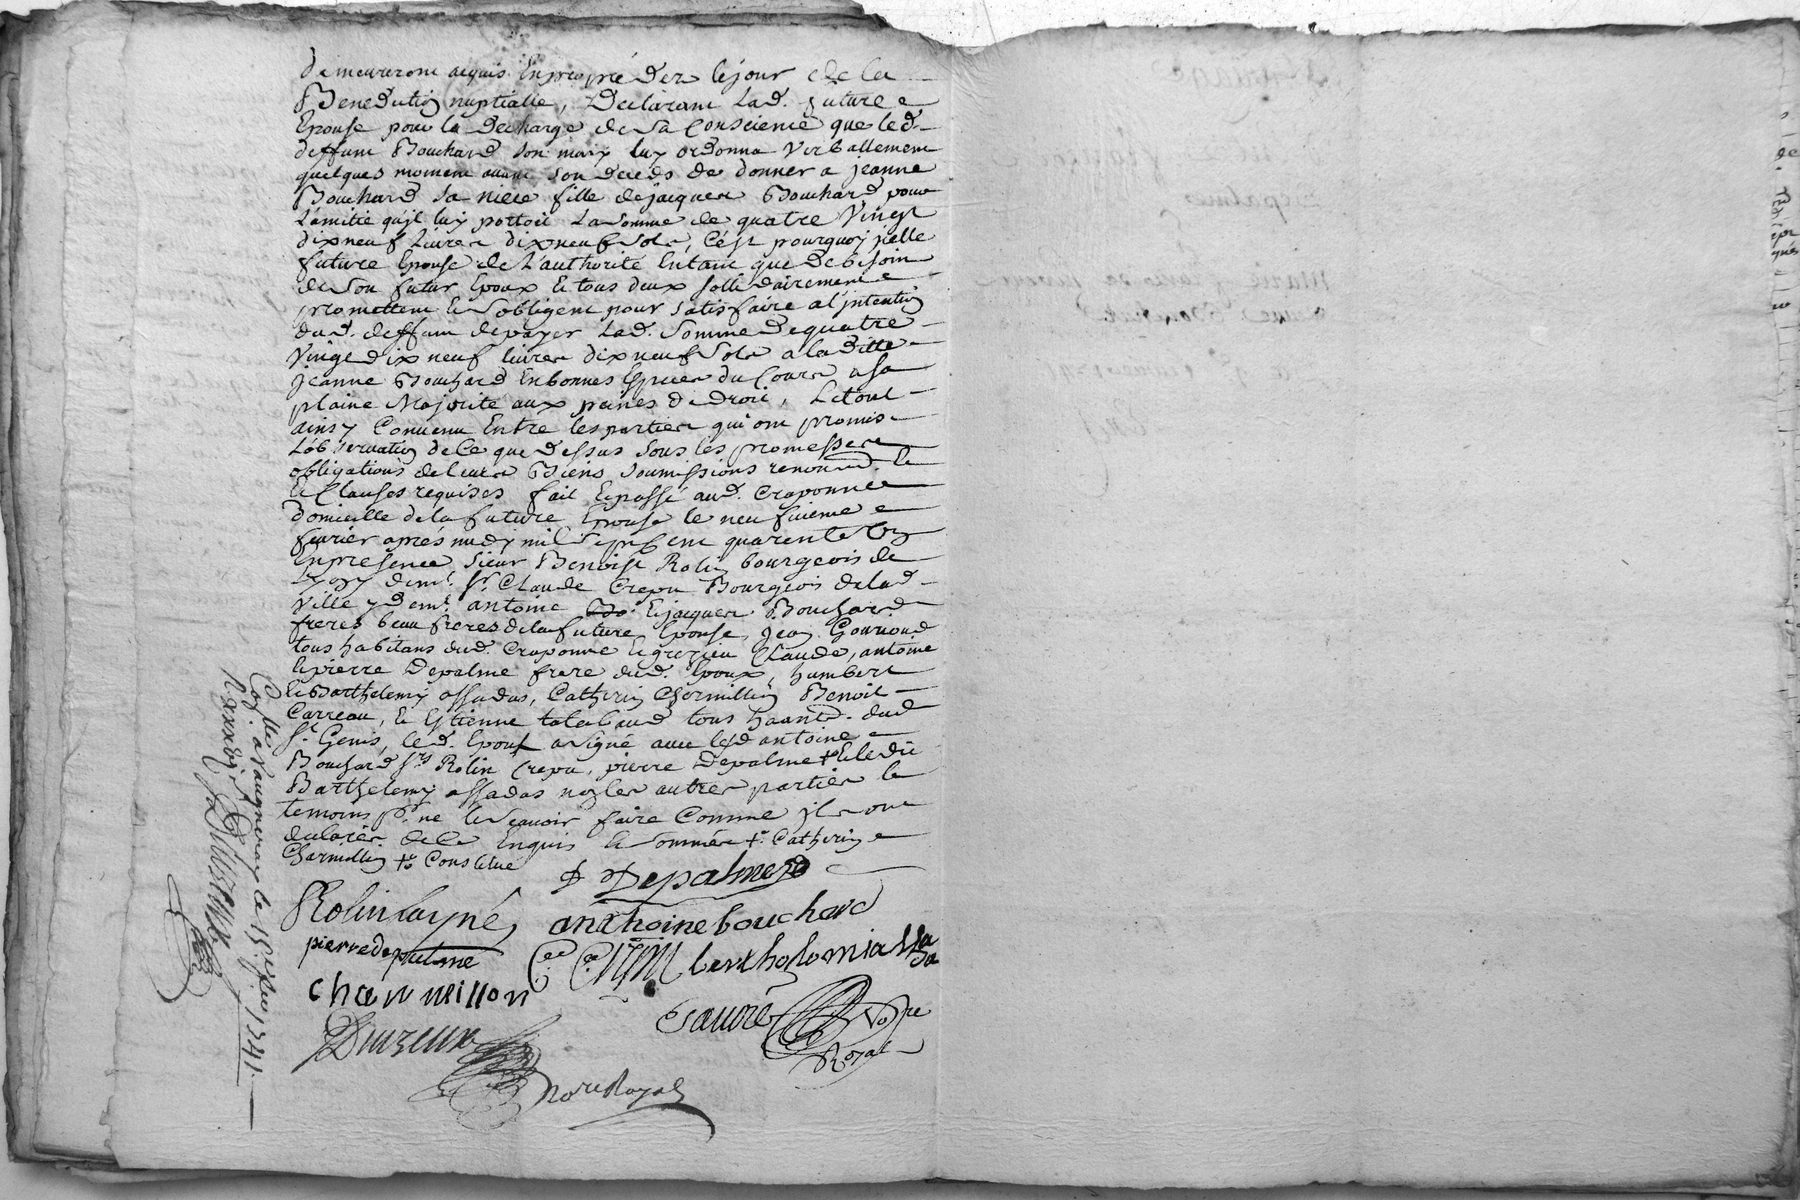 demeureront acquis en proprieté dez le jour de la
Benediction nuptialle, Declarant Lad. future
Epouse pour la Decharge de sa Conscience que led.
deffunt Bouchard son mary luy ordonna Verballement
quelques moment avant son deceds de donner a jeanne
Bouchard sa niece fille de jacques Bouchard pour
L'amitié qu'jl luy portoit La somme de quatre Vingt
dix neuf Livres dix neuf sols, C'est pourquoy jcelle
future Epouse de L'authorité Entant que de besoin
de son futur Epoux Et tous deux sollidairement
promettent Et s'obligent pour satisfaire a l'jntention
dud. deffunt de payer Lad. somme de quatre
Vingt dix neuf livres dix neuf sols a la ditte
jeanne Bouchard En bonnes Especes du Cours a sa
plaine Majorité aux peines de Droit, Le tout
ainsy Convenu Entre les parties qui ont promis
L'observation de Ce que Dessus sous les promesses
obligations de leurs Biens soumissions renond. Et
Et Clauses requises fait Et passé aud. Craponne
domicille de la future Epouse le neufvieme
fevrier aprés midy mil sept Cent quarente Un
En presence, sieur Benoist Rolin bourgeois de
Lyon y demt. sr. Claude Crepu Bourgeois de lad.
Ville y demt. antoine Bo. Et jacques Bouchard
freres beau freres de la future Epouse, Jean Gouriond
tous habitans dud. Craponne Et grezieu Claude, antoine
Et pierre Depalme frere dud. Epoux, humbert
Et Barthelemy assadas, Catherin Charmillon Benoit
Carreau, Et Estienne talebaud tous haant. dud
St. Genis, led. Epoux a signé avec lesd antoine
Bouchard srs Rolin Crepu, pierre Depalme + Et le dit
Barthelemy assadas non les autres parties Et
temoins pr. ne le sçavoir faire Comme jls ont
declarés de Ce Enquis Et sommés +. Catherin
Charmillon + Constitué
D Depalme
Rolin layné antthoine bouchard
pierre depalme bertholomi assada
charmillon
Duzeux Not.re Royal
Not.re Royal
Coll.é a Vaugneray le 15e fevr 1741.